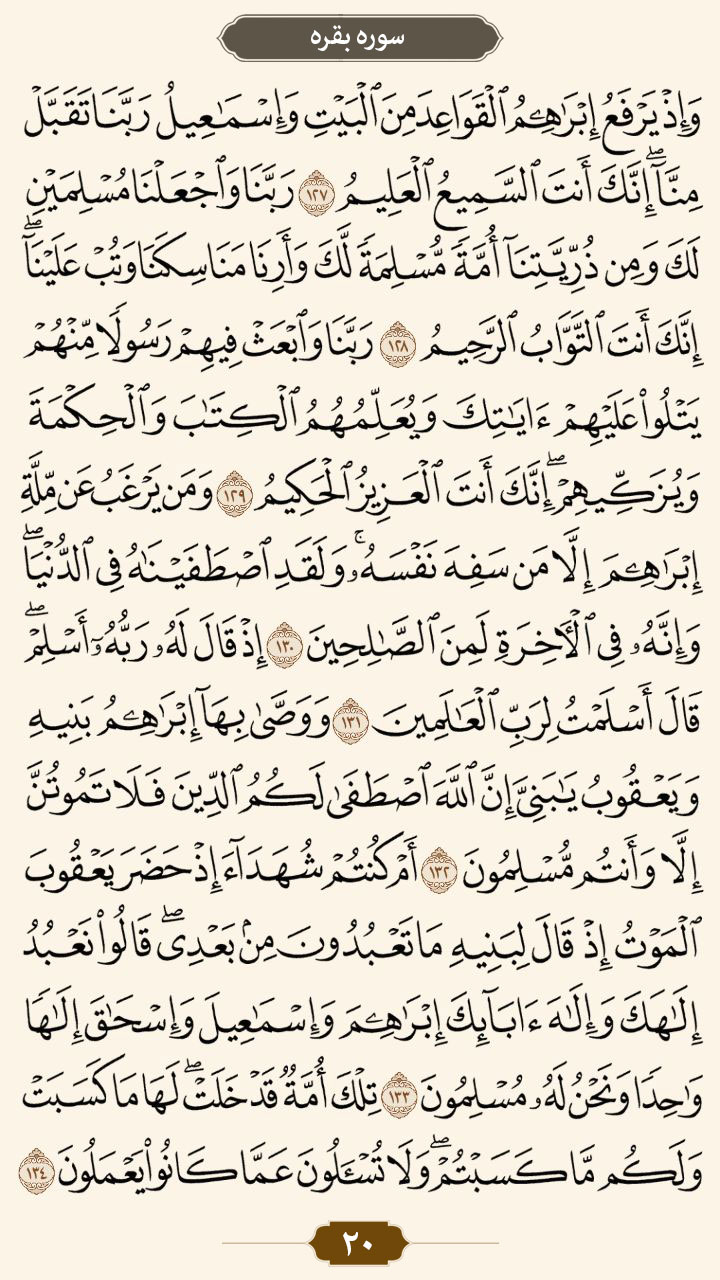 سوره بقره
وَإِذْ يَرْفَعُ إِبْرَٰهِـۧمُ ٱلْقَوَاعِدَ مِنَ ٱلْبَيْتِ وَإِسْمَـٰعِيلُ رَبَّنَا تَقَبَّلْ
مِنَّآ ۖ إِنَّكَ أَنتَ ٱلسَّمِيعُ ٱلْعَلِيمُ ١٢٧ رَبَّنَا وَٱجْعَلْنَا مُسْلِمَيْنِ
لَكَ وَمِن ذُرِّيَّتِنَآ أُمَّةً مُّسْلِمَةً لَّكَ وَأَرِنَا مَنَاسِكَنَا وَتُبْ عَلَيْنَآ ۖ
إِنَّكَ أَنتَ ٱلتَّوَّابُ ٱلرَّحِيمُ ١٢٨ رَبَّنَا وَٱبْعَثْ فِيهِمْ رَسُولًا مِّنْهُمْ
يَتْلُوا۟ عَلَيْهِمْ ءَايَـٰتِكَ وَيُعَلِّمُهُمُ ٱلْكِتَـٰبَ وَٱلْحِكْمَةَ
وَيُزَكِّيهِمْ ۖ إِنَّكَ أَنتَ ٱلْعَزِيزُ ٱلْحَكِيمُ ١٢٩ وَمَن يَرْغَبُ عَن مِّلَّةِ
إِبْرَٰهِـۧمَ إِلَّا مَن سَفِهَ نَفْسَهُۥ ۚ وَلَقَدِ ٱصْطَفَيْنَـٰهُ فِى ٱلدُّنْيَا ۖ
وَإِنَّهُۥ فِى ٱلْـَٔاخِرَةِ لَمِنَ ٱلصَّـٰلِحِينَ ١٣٠ إِذْ قَالَ لَهُۥ رَبُّهُۥٓ أَسْلِمْ ۖ
قَالَ أَسْلَمْتُ لِرَبِّ ٱلْعَـٰلَمِينَ ١٣١ وَوَصَّىٰ بِهَآ إِبْرَٰهِـۧمُ بَنِيهِ
وَيَعْقُوبُ يَـٰبَنِىَّ إِنَّ ٱللَّهَ ٱصْطَفَىٰ لَكُمُ ٱلدِّينَ فَلَا تَمُوتُنَّ
إِلَّا وَأَنتُم مُّسْلِمُونَ ١٣٢ أَمْ كُنتُمْ شُهَدَآءَ إِذْ حَضَرَ يَعْقُوبَ
ٱلْمَوْتُ إِذْ قَالَ لِبَنِيهِ مَا تَعْبُدُونَ مِنۢ بَعْدِى ۖ قَالُوا۟ نَعْبُدُ
إِلَـٰهَكَ وَإِلَـٰهَ ءَابَآئِكَ إِبْرَٰهِـۧمَ وَإِسْمَـٰعِيلَ وَإِسْحَـٰقَ إِلَـٰهًا
وَٰحِدًا وَنَحْنُ لَهُۥ مُسْلِمُونَ ١٣٣ تِلْكَ أُمَّةٌ قَدْ خَلَتْ ۖ لَهَا مَا كَسَبَتْ
وَلَكُم مَّا كَسَبْتُمْ ۖ وَلَا تُسْـَٔلُونَ عَمَّا كَانُوا۟ يَعْمَلُونَ ١٣٤
٢٠